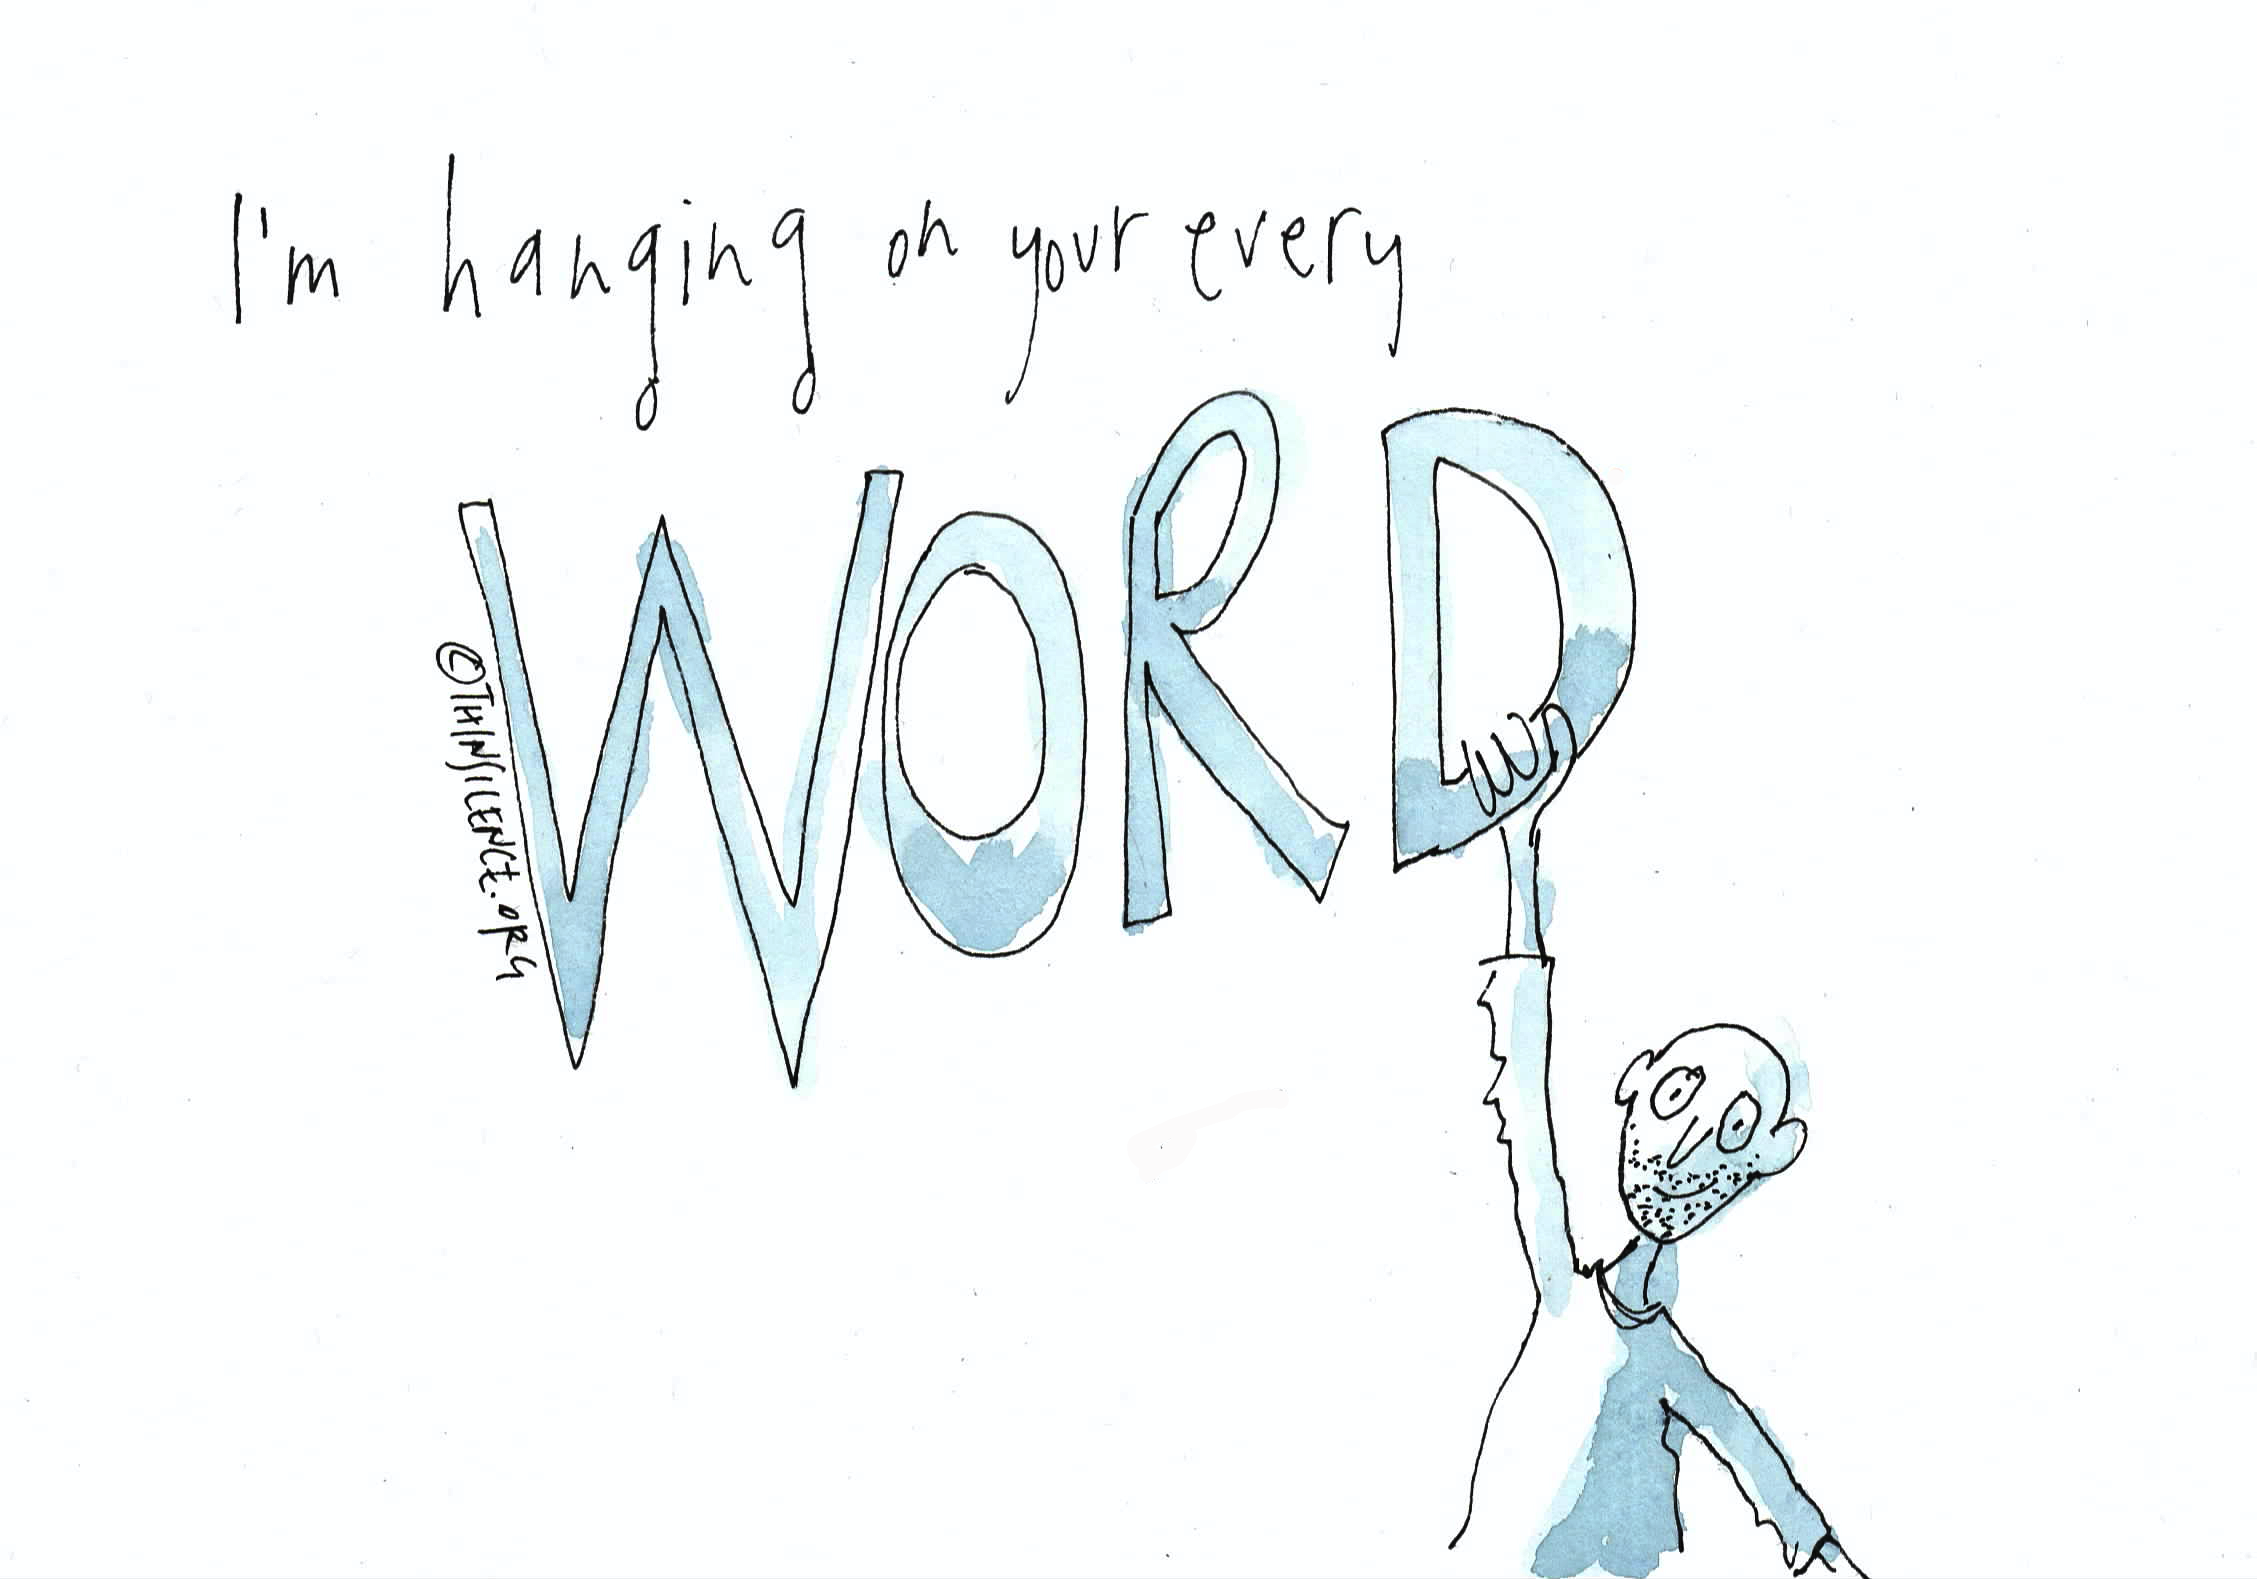 I'm hanging on your every
WORD
©THINSILENCE.ORG